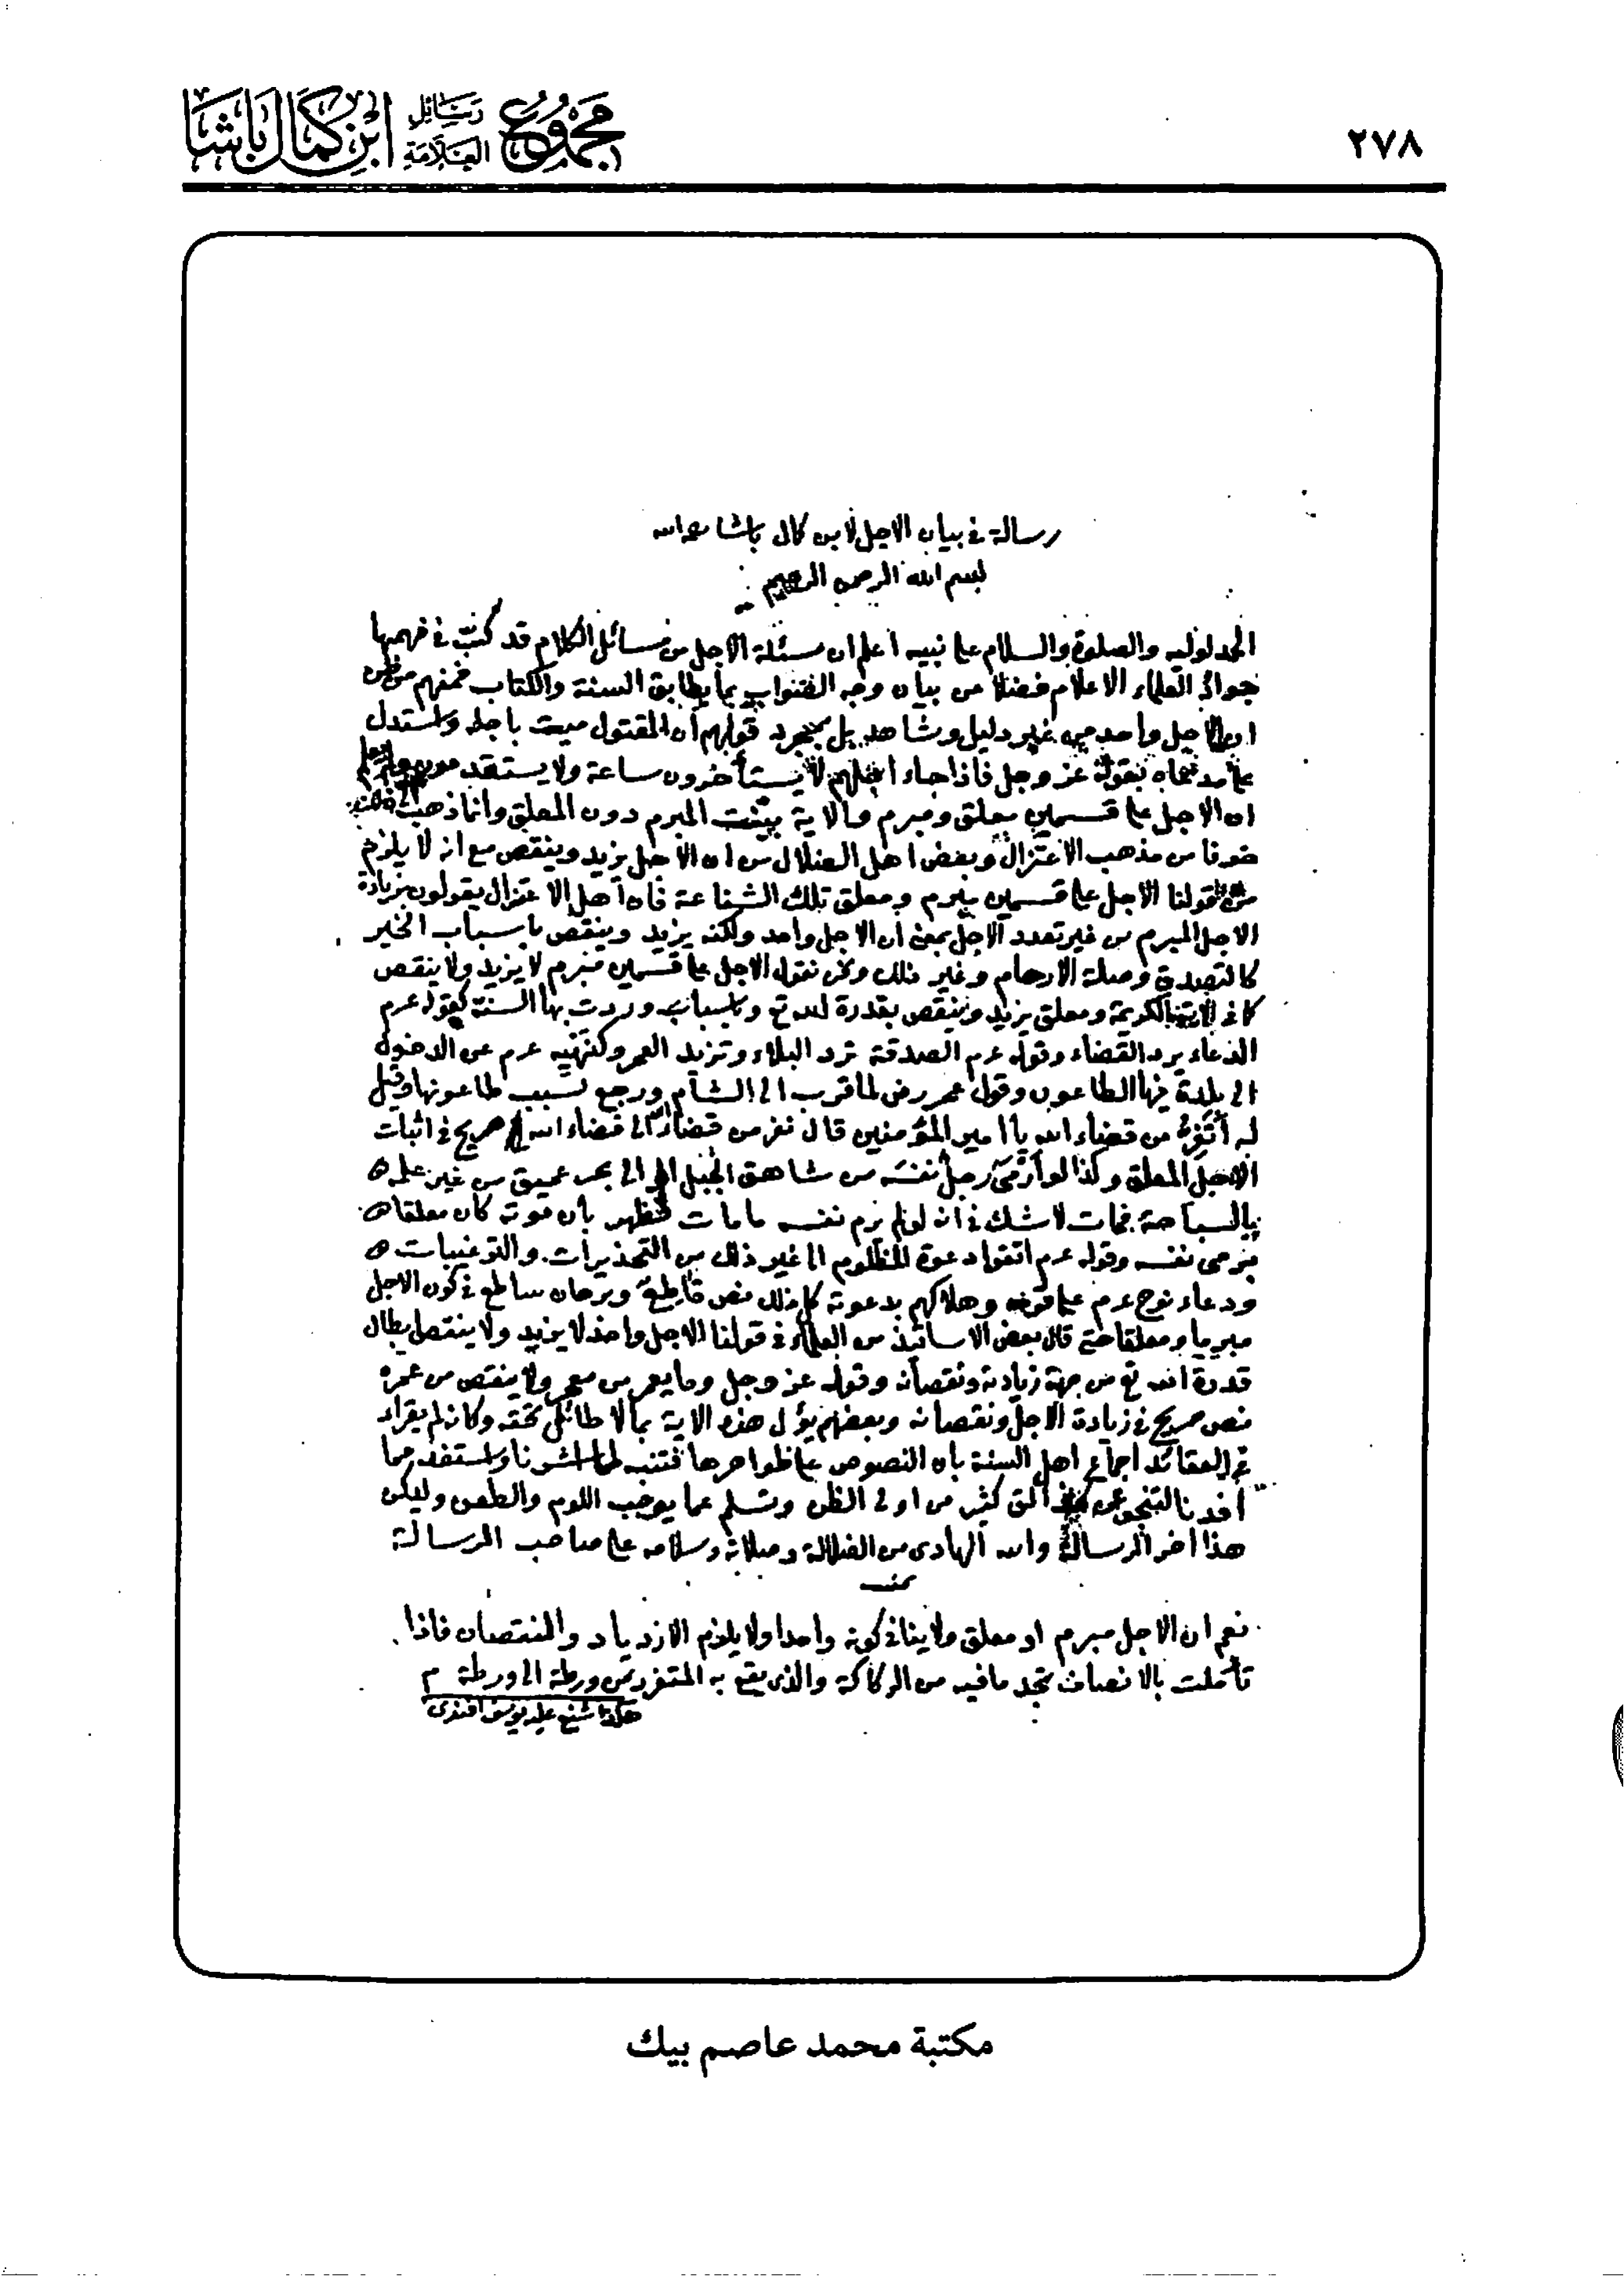 ٢٧٨
مجموع رسائل العلامة ابن كمال باشا
رسالة في بيان الاجل لابن كمال باشا رحمه الله
بسم الله الرحمن الرحيم
الحمد لوليه والصلوة والسلام على نبيه اعلم ان مسئلة الاجل من مسائل الكلام قد كنت في فهمها
العلماء الاعلام فضلا عن بيان وجه الصواب بما يطابق السنة والكتاب فمنهم من ظن
ان الاجل واحد من غير دليل وشاهد بل بمجرد قولهم ان المقتول ميت باجله واستدل
على مدعاه بقوله عز وجل فاذا جاء اجلهم لا يستأخرون ساعة ولا يستقدمون
ان الاجل على قسمين معلق ومبرم والاية بينت المبرم دون المعلق وانما ذهب
خوفا من مذهب الاعتزال وبعض اهل الضلال من ان الاجل يزيد وينقص مع انه لا يلزم
من قولنا الاجل على قسمين مبرم ومعلق تلك الشناعة فان اهل الاعتزال يقولون بزيادة
الاجل المبرم من غير تعدد الاجل بمعنى ان الاجل واحد ولكنه يزيد وينقص باسباب الخير
كالتصدق وصلة الارحام وغير ذلك ونحن نقول الاجل على قسمين مبرم لا يزيد ولا ينقص
كما في الاية الكريمة ومعلق يزيد وينقص بقدرة الله تع وباسباب وردت بها السنة كقوله عرم
الدعاء يرد القضاء وقوله عرم الصدقة ترد البلاء وتزيد العمر وكنهيه عرم عن الدخول
الى بلدة فيها الطاعون وقول عمر رض لما قرب الى الشام ورجع لسبب طاعونها وقيل
له أتفر من قضاء الله يا امير المؤمنين قال نفر من قضاء الله الى قضاء الله صريح في اثبات
الاجل المعلق وكذا لو أرمى رجل نفسه من شاهق الجبل او الى بحر عميق من غير علمه
بالسباحة فمات لا شك في انه لو لم يرم نفسه ما مات فظهر بان موته كان معلقا
برمي نفسه وقوله عرم اتقوا دعوة المظلوم الى غير ذلك من التحذيرات والترغيبات
ودعاء نوح عرم على قومه وهلاكهم بدعوته كل ذلك نص قاطع وبرهان ساطع في كون الاجل
مبرما ومعلقا حتى قال بعض الاساتذ من العلماء في قولنا الاجل واحد لا يزيد ولا ينقص ابطال
قدرة الله تع من جهة زيادته ونقصانه وقوله عز وجل وما يعمر من معمر ولا ينقص من عمره
نص صريح في زيادة الاجل ونقصانه وبعضهم يؤل هذه الاية بما لا طائل تحته وكانه لم يقراء
في العقائد اجماع اهل السنة بان النصوص على ظواهرها فتنبه لما اشرنا واستفد مما
أفدنا لتنجو عن كثير من اولى الظن وتسلم عما يوجب اللوم والطعن وليكن
هذا اخر الرسالة والله الهادى من الضلالة وصلاته وسلامه على صاحب الرسالة
تمت
نعم ان الاجل مبرم او معلق ولا ينافي كونه واحدا ولا يلزم الازدياد والنقصان فاذا
تأملت بالانصاف تجد ما فيه من الركاكة والذى يقع به المتفرد من ورطة الى ورطة م
هكذا شنع عليه يونس افندى
مكتبة محمد عاصم بيك